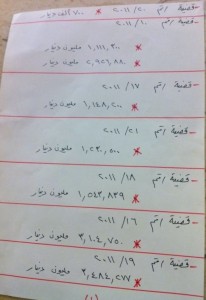 قضية / تم / ٢٠ / ٢٠١١ * ٧٠٠ ألف دينار
قضية / تم / ١٠ / ٢٠١١
* ١,١١١,٣٠٠ مليون دينار
* ٢,٩٢٦,٨٨٠ مليون دينار
قضية / تم / ١٧ / ٢٠١١
* ١,١٤٨,٢٠٠ مليون دينار
قضية / تم / ٢١ / ٢٠١١
* ١,٢٣٠,٥٠٠ مليون دينار
قضية / تم / ١٨ / ٢٠١١
* ١,٥٤٣,٨٣٩ مليون دينار
قضية / تم / ١٦ / ٢٠١١
* ٣,١٠٤,٧٥٠ مليون دينار
قضية / تم / ١٩ / ٢٠١١
* ٣,٤٨٤,٢٧٧ مليون دينار
(١)